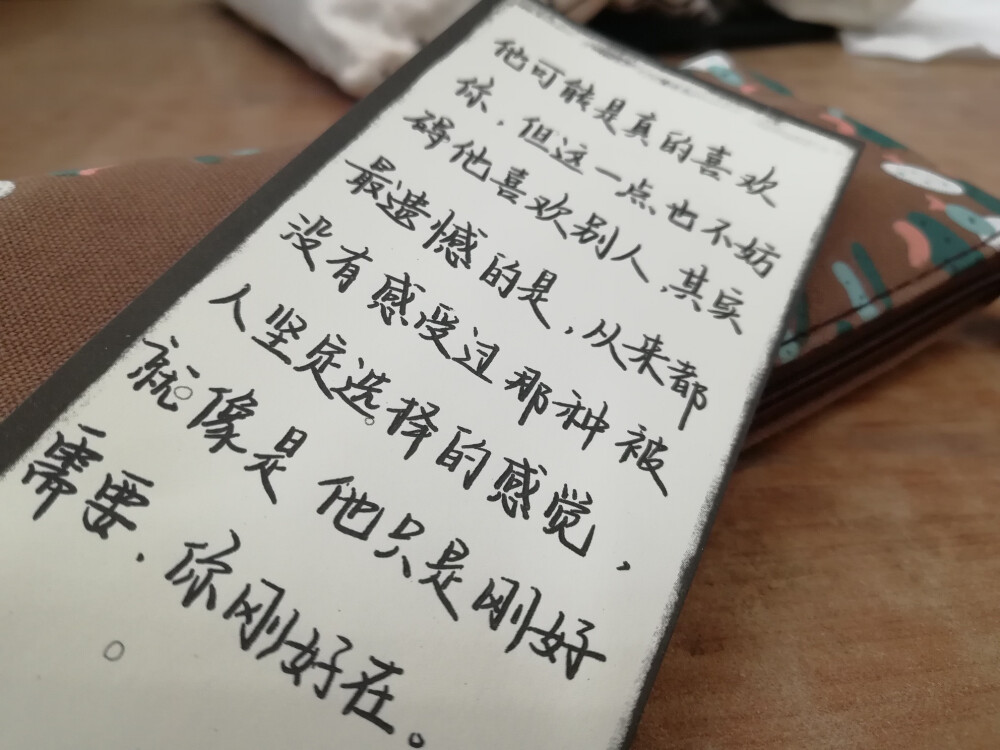 他可能是真的喜欢
你．但这一点也不妨
碍他喜欢别人．其实
最遗憾的是，从来都
没有感受过那种被
人坚定选择的感觉，
就像是他只是刚好
需要．你刚好在。